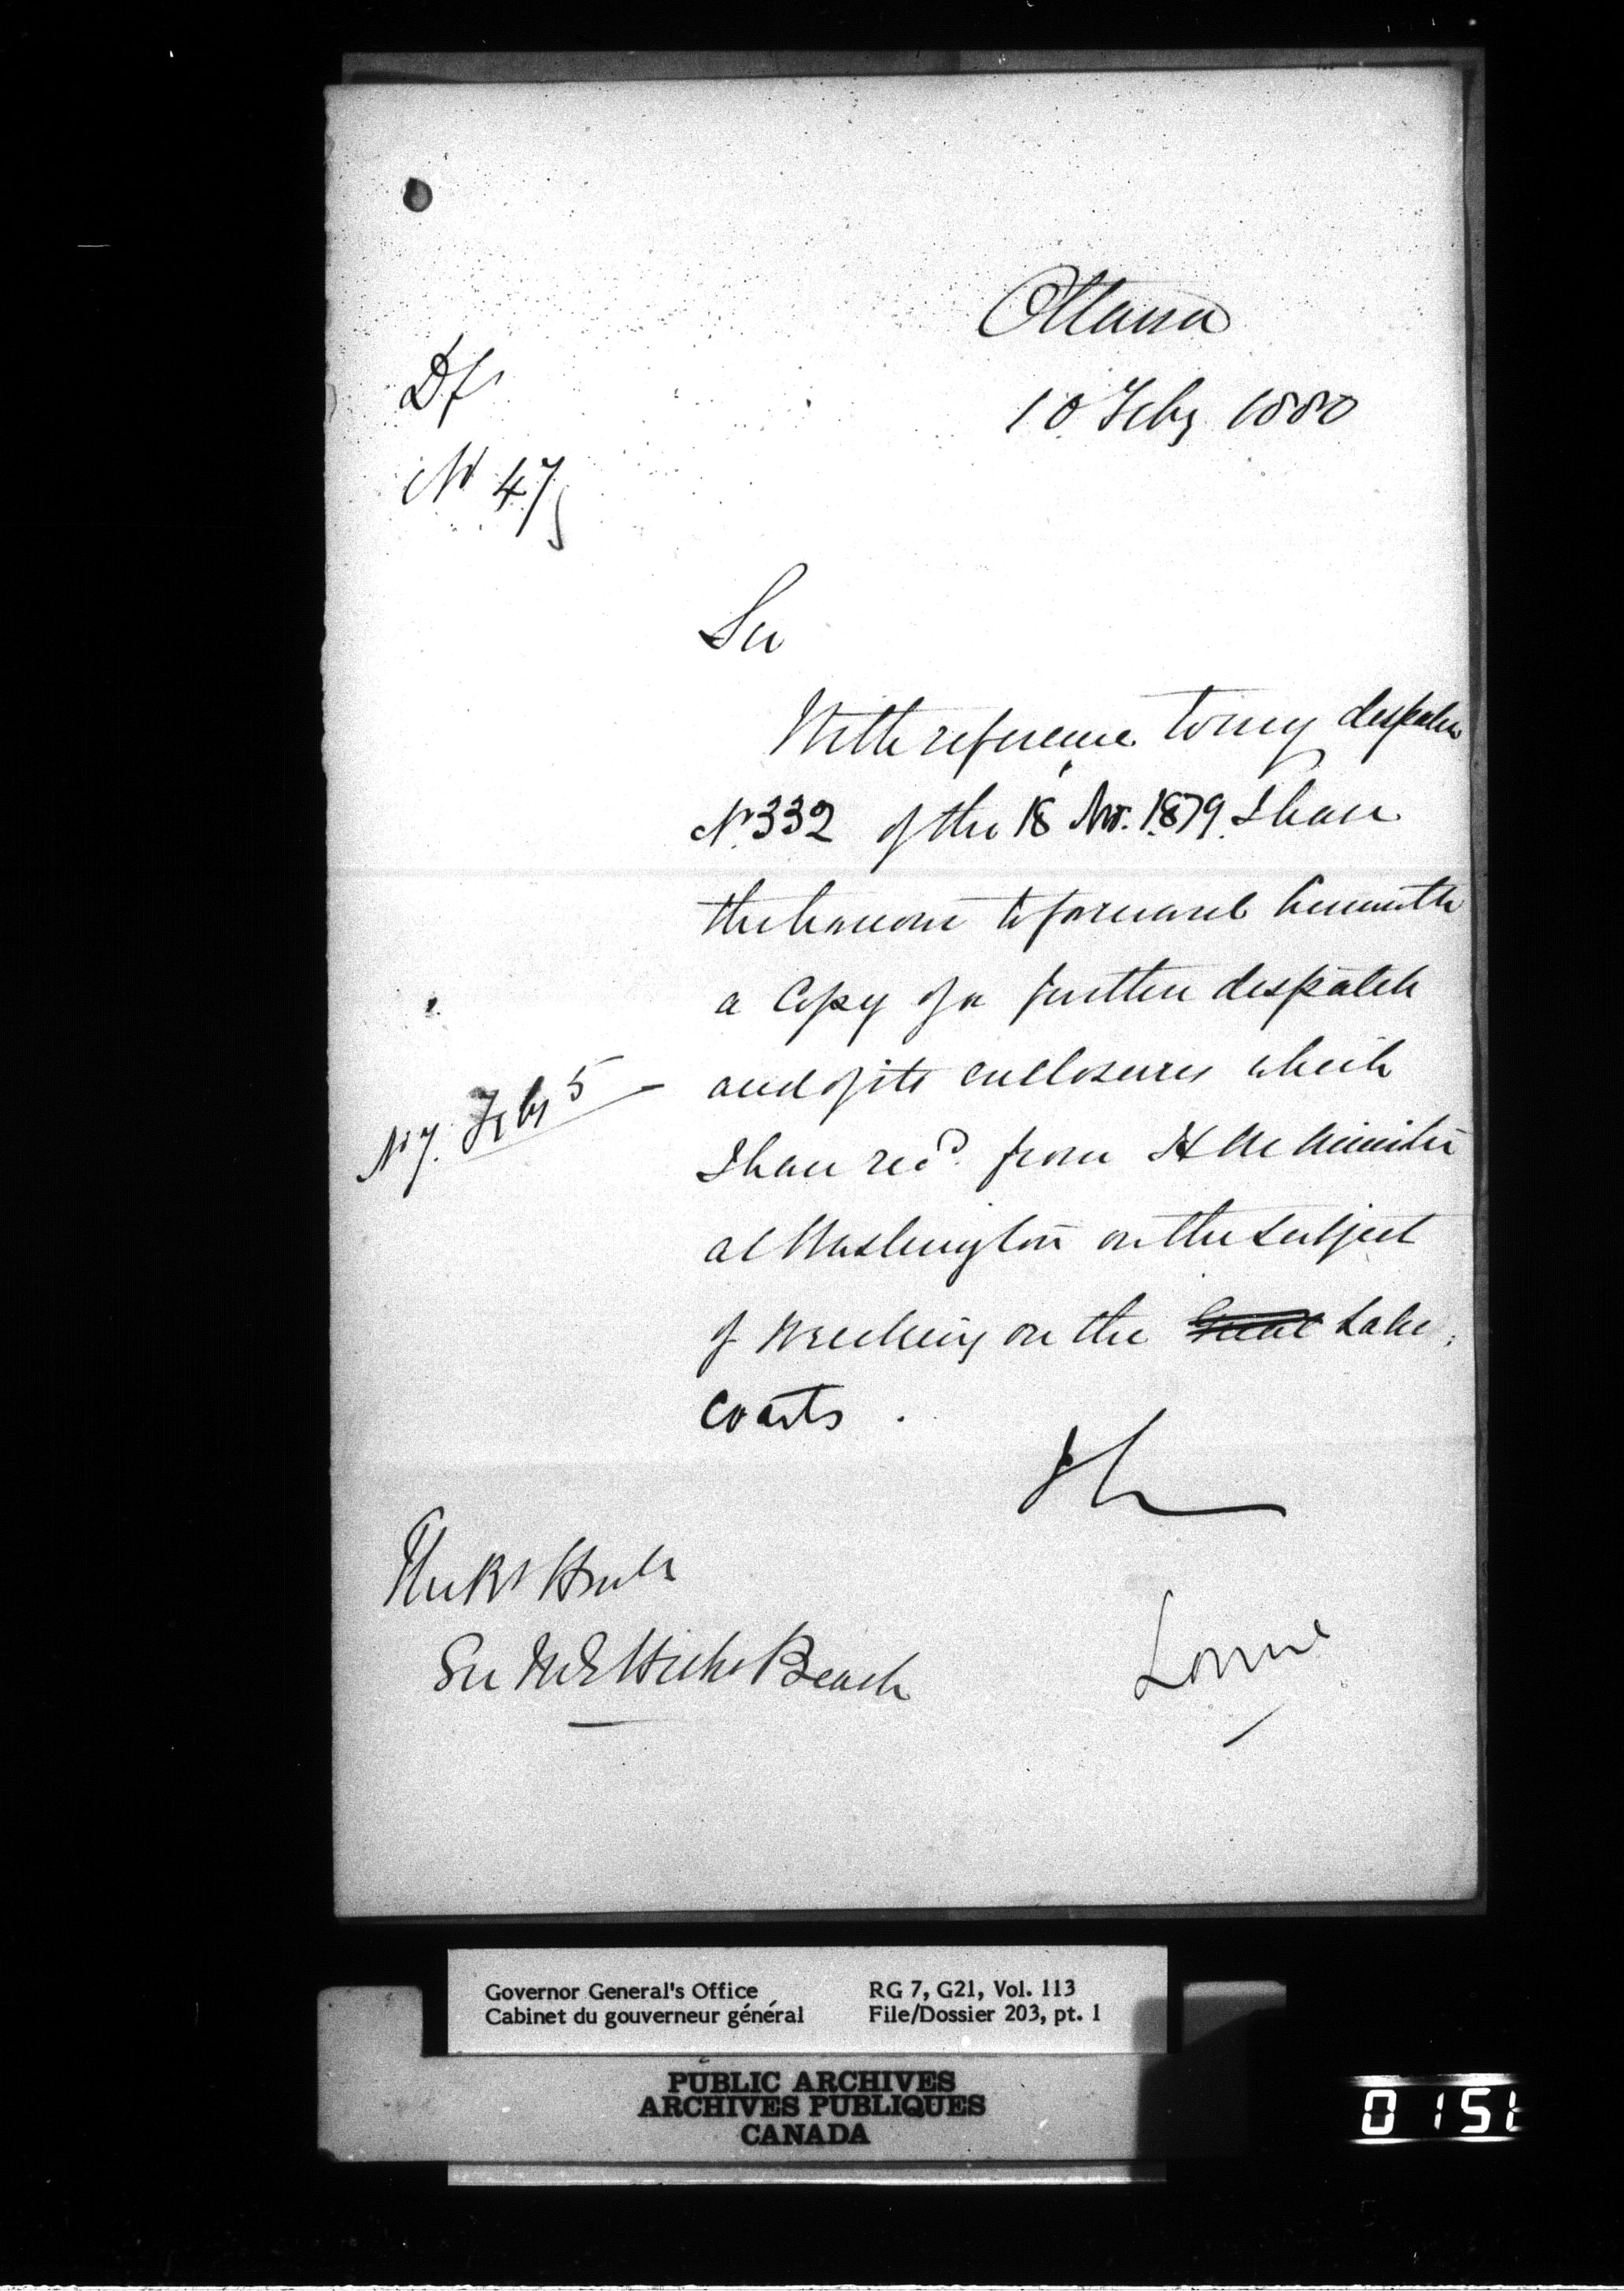 Ottawa
Df
10 Feby 1880
No 47
Sir
With reference to my despatch
No 332 of the 18 Nov. 1879. I have
the honour to forward herewith
a Copy of a further despatch
and of its enclosures which
No 7. Feby 5
I have recd. from H M Minister
at Washington on the subject
of Wrecking on the ~~Great~~ Lake
Coasts.
I h
The Rt Honble
Sir M E Hicks Beach
Lorne
Governor General's Office
Cabinet du gouverneur général
RG 7, G21, Vol. 113
File/Dossier 203, pt. 1
PUBLIC ARCHIVES
ARCHIVES PUBLIQUES
CANADA
0151